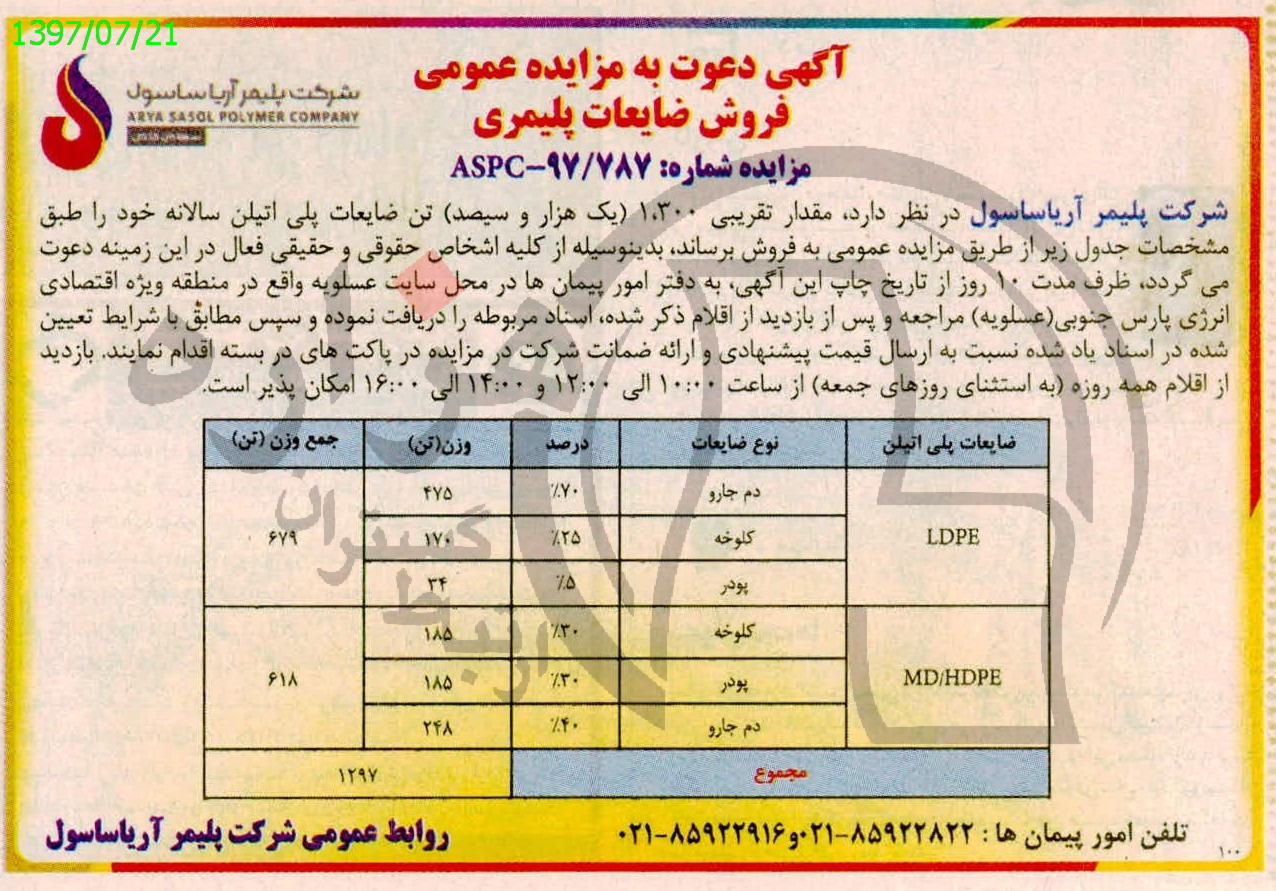 1397/07/21
آگهی دعوت به مزایده عمومی
فروش ضایعات پلیمری
مزایده شماره: ASPC-۹۷/۷۸۷
شرکت پلیمر آریاساسول
ARYA SASOL POLYMER COMPANY
شرکت پلیمر آریاساسول در نظر دارد، مقدار تقریبی ۱،۳۰۰ (یک هزار و سیصد) تن ضایعات پلی اتیلن سالانه خود را طبق
مشخصات جدول زیر از طریق مزایده عمومی به فروش برساند، بدینوسیله از کلیه اشخاص حقوقی و حقیقی فعال در این زمینه دعوت
می گردد، ظرف مدت ۱۰ روز از تاریخ چاپ این آگهی، به دفتر امور پیمان ها در محل سایت عسلویه واقع در منطقه ویژه اقتصادی
انرژی پارس جنوبی(عسلویه) مراجعه و پس از بازدید از اقلام ذکر شده، اسناد مربوطه را دریافت نموده و سپس مطابق با شرایط تعیین
شده در اسناد یاد شده نسبت به ارسال قیمت پیشنهادی و ارائه ضمانت شرکت در مزایده در پاکت های در بسته اقدام نمایند. بازدید
از اقلام همه روزه (به استثنای روزهای جمعه) از ساعت ۱۰:۰۰ الی ۱۲:۰۰ و ۱۴:۰۰ الی ۱۶:۰۰ امکان پذیر است.
ضایعات پلی اتیلن نوع ضایعات درصد وزن(تن) جمع وزن (تن)
دم جارو ٪۷۰ ۴۷۵
LDPE کلوخه ٪۲۵ ۱۷۰ ۶۷۹
پودر ٪۵ ۳۴
کلوخه ٪۳۰ ۱۸۵
MD/HDPE پودر ٪۳۰ ۱۸۵ ۶۱۸
دم جارو ٪۴۰ ۲۴۸
مجموع ۱۲۹۷
تلفن امور پیمان ها : ۸۵۹۲۲۸۲۲-۰۲۱و۸۵۹۲۲۹۱۶-۰۲۱
روابط عمومی شرکت پلیمر آریاساسول
۱۰۰
هزاره
ارتباط گستران